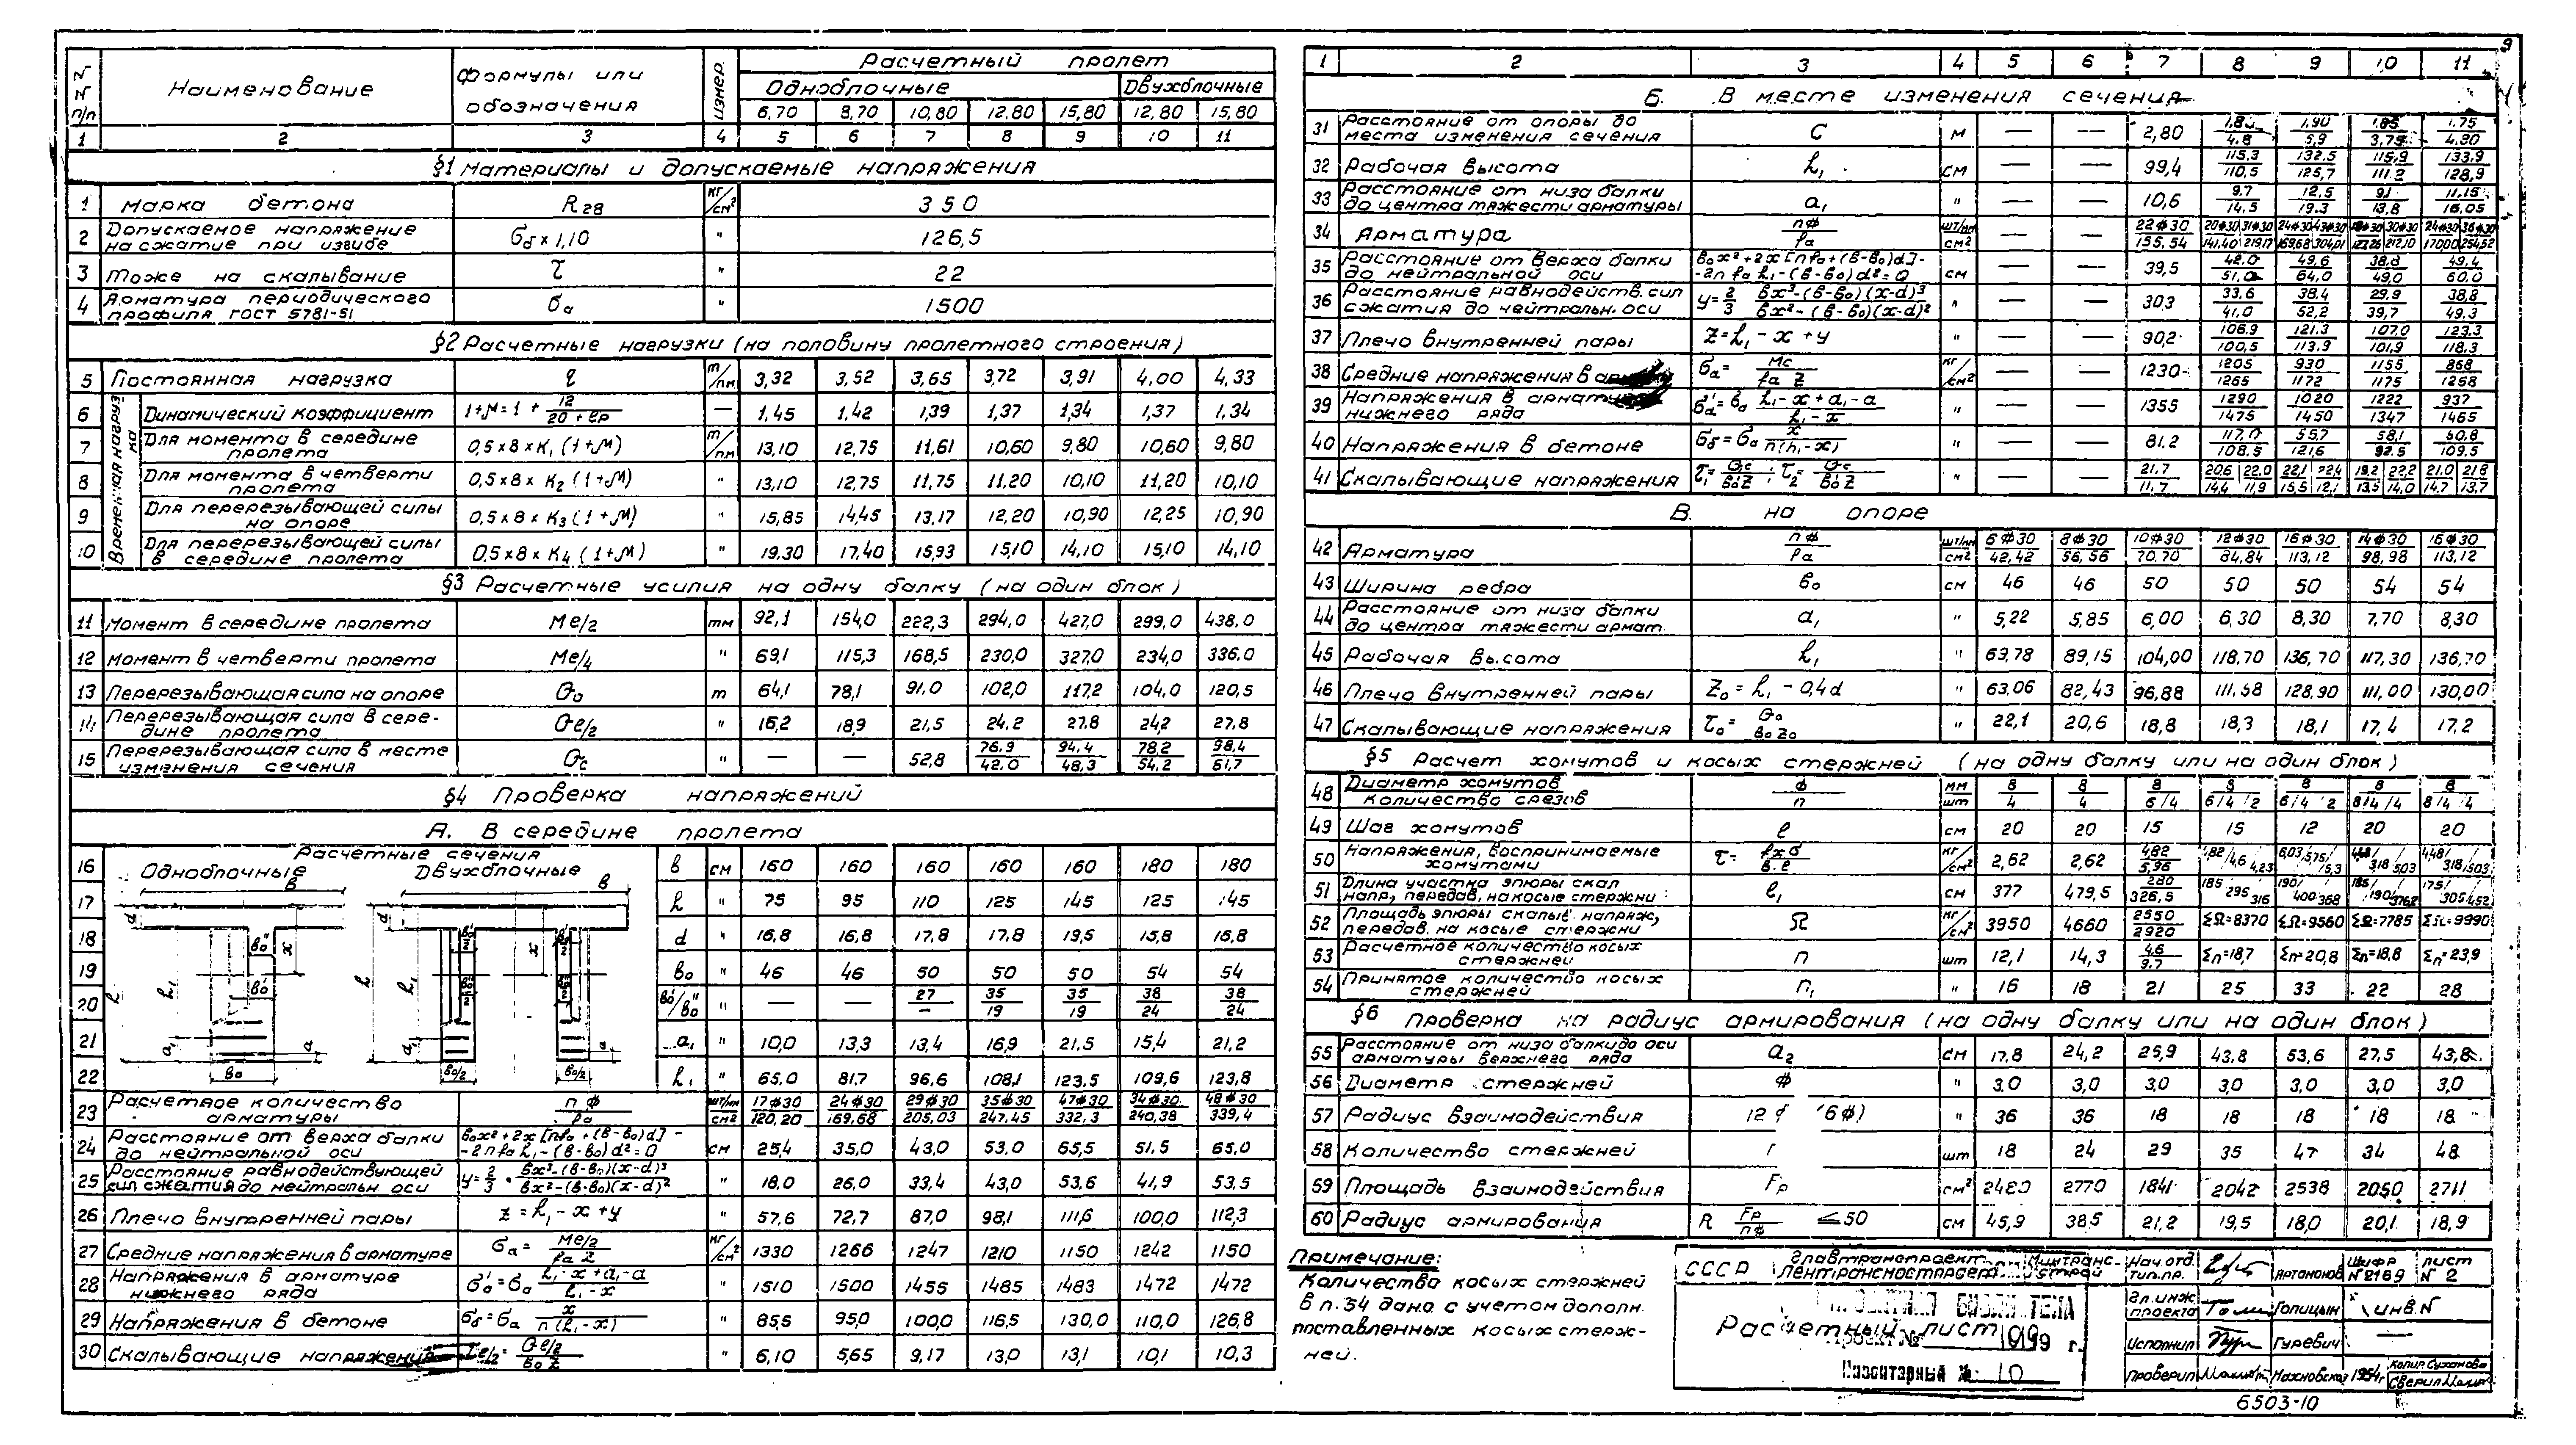 9
N N п/п | Наименование | Формулы или обозначения | измер. | Расчетный пролет
Одноблочные | Двухблочные
6,70 | 8,70 | 10,80 | 12,80 | 15,80 | 12,80 | 15,80
1 | 2 | 3 | 4 | 5 | 6 | 7 | 8 | 9 | 10 | 11
§1 Материалы и допускаемые напряжения
1 | Марка бетона | R28 | кг/см² | 350
2 | Допускаемое напряжение на сжатие при изгибе | σб × 1,10 | " | 126,5
3 | Тоже на скалывание | τ | " | 22
4 | Арматура периодического профиля ГОСТ 5781-51 | σа | " | 1500
§2 Расчетные нагрузки (на половину пролетного строения)
5 | Постоянная нагрузка | q | т/пм | 3,32 | 3,52 | 3,65 | 3,72 | 3,91 | 4,00 | 4,33
Временная нагрузка
6 | Динамический коэффициент | 1+μ = 1 + 12/(20+ℓр) | — | 1,45 | 1,42 | 1,39 | 1,37 | 1,34 | 1,37 | 1,34
7 | Для момента в середине пролета | 0,5×8×K1 (1+μ) | т/пм | 13,10 | 12,75 | 11,61 | 10,60 | 9,80 | 10,60 | 9,80
8 | Для момента в четверти пролета | 0,5×8×K2 (1+μ) | " | 13,10 | 12,75 | 11,75 | 11,20 | 10,10 | 11,20 | 10,10
9 | Для перерезывающей силы на опоре | 0,5×8×K3 (1+μ) | " | 15,85 | 14,45 | 13,17 | 12,20 | 10,90 | 12,25 | 10,90
10 | Для перерезывающей силы в середине пролета | 0,5×8×K4 (1+μ) | " | 19,30 | 17,40 | 15,93 | 15,10 | 14,10 | 15,10 | 14,10
§3 Расчетные усилия на одну балку (на один блок)
11 | Момент в середине пролета | Mℓ/2 | тм | 92,1 | 154,0 | 222,3 | 294,0 | 427,0 | 299,0 | 438,0
12 | Момент в четверти пролета | Mℓ/4 | " | 69,1 | 115,3 | 168,5 | 230,0 | 327,0 | 234,0 | 336,0
13 | Перерезывающая сила на опоре | Q0 | т | 64,1 | 78,1 | 91,0 | 102,0 | 117,2 | 104,0 | 120,5
14 | Перерезывающая сила в середине пролета | Qℓ/2 | " | 16,2 | 18,9 | 21,5 | 24,2 | 27,8 | 24,2 | 27,8
15 | Перерезывающая сила в месте изменения сечения | Qс | " | — | — | 52,8 | 76,9/42,0 | 94,4/48,3 | 78,2/54,2 | 98,4/61,7
§4 Проверка напряжений
А. В середине пролета
Расчетные сечения
Одноблочные Двухблочные
16 | в | см | 160 | 160 | 160 | 160 | 160 | 180 | 180
17 | h | " | 75 | 95 | 110 | 125 | 145 | 125 | 145
18 | d | " | 16,8 | 16,8 | 17,8 | 17,8 | 19,5 | 15,8 | 16,8
19 | в0 | " | 46 | 46 | 50 | 50 | 50 | 54 | 54
20 | в0'/в0" | " | — | — | 27/— | 35/19 | 35/19 | 38/24 | 38/24
21 | а1 | " | 10,0 | 13,3 | 13,4 | 16,9 | 21,5 | 15,4 | 21,2
22 | h1 | " | 65,0 | 81,7 | 96,6 | 108,1 | 123,5 | 109,6 | 123,8
23 | Расчетное количество арматуры | nф/fа | шт/мм см² | 17ф30/120,20 | 24ф30/169,68 | 29ф30/205,03 | 35ф30/247,45 | 47ф30/332,3 | 34ф30/240,38 | 48ф30/339,4
24 | Расстояние от верха балки до нейтральной оси | в0x²+2x[nfа+(в-в0)d]--2nfаh1-(в-в0)d²=0 | см | 25,4 | 35,0 | 43,0 | 53,0 | 65,5 | 51,5 | 65,0
25 | Расстояние равнодействующей сил сжатия до нейтральн. оси | y=2/3 · (вx³-(в-в0)(x-d)³)/(вx²-(в-в0)(x-d)²) | " | 18,0 | 26,0 | 33,4 | 43,0 | 53,6 | 41,9 | 53,5
26 | Плечо внутренней пары | z=h1-x+y | " | 57,6 | 72,7 | 87,0 | 98,1 | 111,6 | 100,0 | 112,3
27 | Средние напряжения в арматуре | σа = Mℓ/2 / fа z | кг/см² | 1330 | 1266 | 1247 | 1210 | 1150 | 1242 | 1150
28 | Напряжения в арматуре нижнего ряда | σа' = σа (h1-x+а1-а)/(h1-x) | " | 1510 | 1500 | 1455 | 1485 | 1483 | 1472 | 1472
29 | Напряжения в бетоне | σб = σа x/(n(h1-x)) | " | 85,5 | 95,0 | 100,0 | 116,5 | 130,0 | 110,0 | 126,8
30 | Скалывающие напряжения | τℓ/2 = Qℓ/2 / в0 z | " | 6,10 | 5,65 | 9,17 | 13,0 | 13,1 | 10,1 | 10,3
1 | 2 | 3 | 4 | 5 | 6 | 7 | 8 | 9 | 10 | 11
Б. В месте изменения сечения
31 | Расстояние от опоры до места изменения сечения | С | м | — | — | 2,80 | /4,8 | 1,90/5,9 | 1,85/3,75 | 1,75/4,80
32 | Рабочая высота | h1 | см | — | — | 99,4 | 115,3/110,5 | 132,5/125,7 | 115,9/111,2 | 133,9/128,9
33 | Расстояние от низа балки до центра тяжести арматуры | а1 | " | — | — | 10,6 | 9,7/14,5 | 12,5/19,3 | 9,1/13,8 | 11,15/16,05
34 | Арматура | nф/fа | шт/мм см² | 22ф30/155,54 | 20ф30 31ф30/141,40 219,17 | 24ф30 43ф30/169,68 304,01 | 30ф30/212,10 | 24ф30 36ф30/170,00 254,52
35 | Расстояние от верха балки до нейтральной оси | в0x²+2x[nfа+(в-в0)d]--2nfаh1-(в-в0)d²=0 | см | — | — | 39,5 | 42,0/51,0 | 49,6/64,0 | 38,8/49,0 | 49,4/60,0
36 | Расстояние равнодейств. сил сжатия до нейтральн. оси | y=2/3 (вx³-(в-в0)(x-d)³)/(вx²-(в-в0)(x-d)²) | " | — | — | 303 | 33,6/41,0 | 38,4/52,2 | 29,9/39,7 | 38,8/49,3
37 | Плечо внутренней пары | z=h1-x+y | " | — | — | 90,2 | 106,9/100,5 | 121,3/113,9 | 107,0/101,9 | 123,3/118,3
38 | Средние напряжения в | σа = Mс/fа z | кг/см² | — | — | 1230 | 1205/1265 | 930/1172 | 1155/1175 | 868/1258
39 | Напряжения в арматуре нижнего ряда | σа' = σа (h1-x+а1-а)/(h1-x) | " | — | — | 1355 | 1290/1475 | 1020/1450 | 1222/1347 | 937/1465
40 | Напряжения в бетоне | σб = σа x/(n(h1-x)) | " | — | — | 81,2 | 117,0/108,5 | 55,7/121,6 | 58,1/92,5 | 50,8/109,5
41 | Скалывающие напряжения | τ1 = Qс/в0'z ; τ2 = Qс/в0"z | " | — | — | 21,7/11,7 | 20,6 22,0/14,4 11,9 | 22,1 22,4/15,5 12,1 | 19,2 22,2/13,5 14,0 | 21,0 21,8/14,7 13,7
В. на опоре
42 | Арматура | nф/fа | шт/мм см² | 6ф30/42,42 | 8ф30/56,56 | 10ф30/70,70 | 12ф30/84,84 | 16ф30/113,12 | 14ф30/98,98 | 16ф30/113,12
43 | Ширина ребра | в0 | см | 46 | 46 | 50 | 50 | 50 | 54 | 54
44 | Расстояние от низа балки до центра тяжести армат. | а1 | " | 5,22 | 5,85 | 6,00 | 6,30 | 8,30 | 7,70 | 8,30
45 | Рабочая высота | h1 | " | 69,78 | 89,15 | 104,00 | 118,70 | 136,70 | 117,30 | 136,70
46 | Плечо внутренней пары | z0 = h1 - 0,4d | " | 63,06 | 82,43 | 96,88 | 111,58 | 128,90 | 111,00 | 130,00
47 | Скалывающие напряжения | τ0 = Q0/в0 z0 | " | 22,1 | 20,6 | 18,8 | 18,3 | 18,1 | 17,4 | 17,2
§5 Расчет хомутов и косых стержней (на одну балку или на один блок)
48 | Диаметр хомутов / Количество срезов | ф/n | мм/шт | 8/4 | 8/4 | 8 6/4 | 8 6/4/2 | 8 6/4/2 | 8 8/4/4 | 8 8/4/4
49 | Шаг хомутов | ℓ | см | 20 | 20 | 15 | 15 | 12 | 20 | 20
50 | Напряжения, воспринимаемые хомутами | τ = fxσ/в·ℓ | кг/см² | 2,62 | 2,62 | 4,82/5,96 | 4,82/4,6/4,23 | 6,03/5,75/5,3 | 3,18/5,03 | 4,48/3,18/5,03
51 | Длина участка эпюры скал напр, передав, на косые стержни | ℓ1 | см | 377 | 479,5 | 280/326,5 | 185/295/316 | 190/400/368 | 185/190/376,2 | 175/305/452
52 | Площадь эпюры скалыв. напряж, передав. на косые стержни | Ω | кг/см² | 3950 | 4660 | 2550/2920 | ΣΩ=8370 | ΣΩ=9560 | ΣΩ=7785 | ΣΩ=9990
53 | Расчетное количество косых стержней | n | шт | 12,1 | 14,3 | 4,6/9,7 | Σn=18,7 | Σn=20,8 | Σn=18,8 | Σn=23,9
54 | Принятое количество косых стержней | n1 | " | 16 | 18 | 21 | 25 | 33 | 22 | 28
§6 Проверка на радиус армирования (на одну балку или на один блок)
55 | Расстояние от низа балки до оси арматуры верхнего ряда | а2 | см | 17,8 | 24,2 | 25,9 | 43,8 | 53,6 | 27,5 | 43,8
56 | Диаметр стержней | ф | " | 3,0 | 3,0 | 3,0 | 3,0 | 3,0 | 3,0 | 3,0
57 | Радиус взаимодействия | 12 ф (6ф) | " | 36 | 36 | 18 | 18 | 18 | 18 | 18
58 | Количество стержней | шт | 18 | 24 | 29 | 35 | 47 | 34 | 48
59 | Площадь взаимодействия | Fр | см² | 2480 | 2770 | 1841 | 2042 | 2538 | 2050 | 2711
60 | Радиус армирования | R Fр/nф ≤ 50 | см | 45,9 | 38,5 | 21,2 | 19,5 | 18,0 | 20,1 | 18,9
Примечание:
Количество косых стержней
в п. 54 дано с учетом дополн.
поставленных косых стерж-
ней.
СССР | Главтранспроект Лентрансмостпроект | Минтрансстрой
Расчетный лист
Проект № 99 г.
Инвентарный № 10
Нач. отд. тип.пр. | Артамонов | Шифр N 2169 | лист N 2
Гл. инж. проекта | Голицын | инв. N
Исполнил | Гуревич | —
Проверил | Махновская | 1954г | Копир. Суханова
Сверил
6503-10